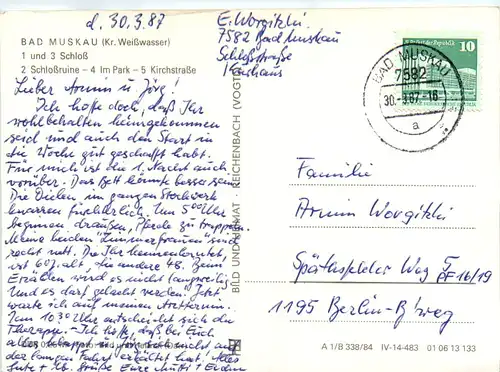 d. 30.3.87
BAD MUSKAU (Kr. Weißwasser)
1 und 3 Schloß
2 Schloßruine – 4 Im Park – 5 Kirchstraße
Lieber Armin u. Jörg!
Ich hoffe doch, daß Ihr
wohlbehalten heimgekommen
seid und auch den Start in
die Woche gut geschafft habt.
Für mich ist die 1. Nacht auch
vorüber. Das Bett könnte besser sein.
Die Dielen im ganzen Stockwerk
knarren fürchterlich. Um 5⁰⁰ Uhr
beginnen draußen, Pferde zu trappen.
Meine beiden "Zimmerfrauen" sind
recht nett. Die
ist 60 J. alt, die andere 48. Beim
Erzählen wird es nicht langweilig
und es darf gelacht werden. Jetzt
warte ich auf meinen Arzttermin.
Um 10.30 Uhr entscheidet sich die
Therapie. Ich hoffe, daß bei Euch
alles klappt u. Ihr Euch nicht auf
der langen Fahrt erkältet habt! Alles
Gute u. lb. Grüße Eure
E. Worgitzki
7582 Bad Muskau
Schloßstraße
Kurhaus
BILD UND HEIMAT REICHENBACH (VOGTL)
10
BAD MUSKAU
7582
30.-3.87-16
a
Familie
Armin Worgitzki
Späthsfelder Weg 5
PF 16/19
1195 Berlin-B'weg
A 1/B 338/84 IV-14-483 01 06 13 133